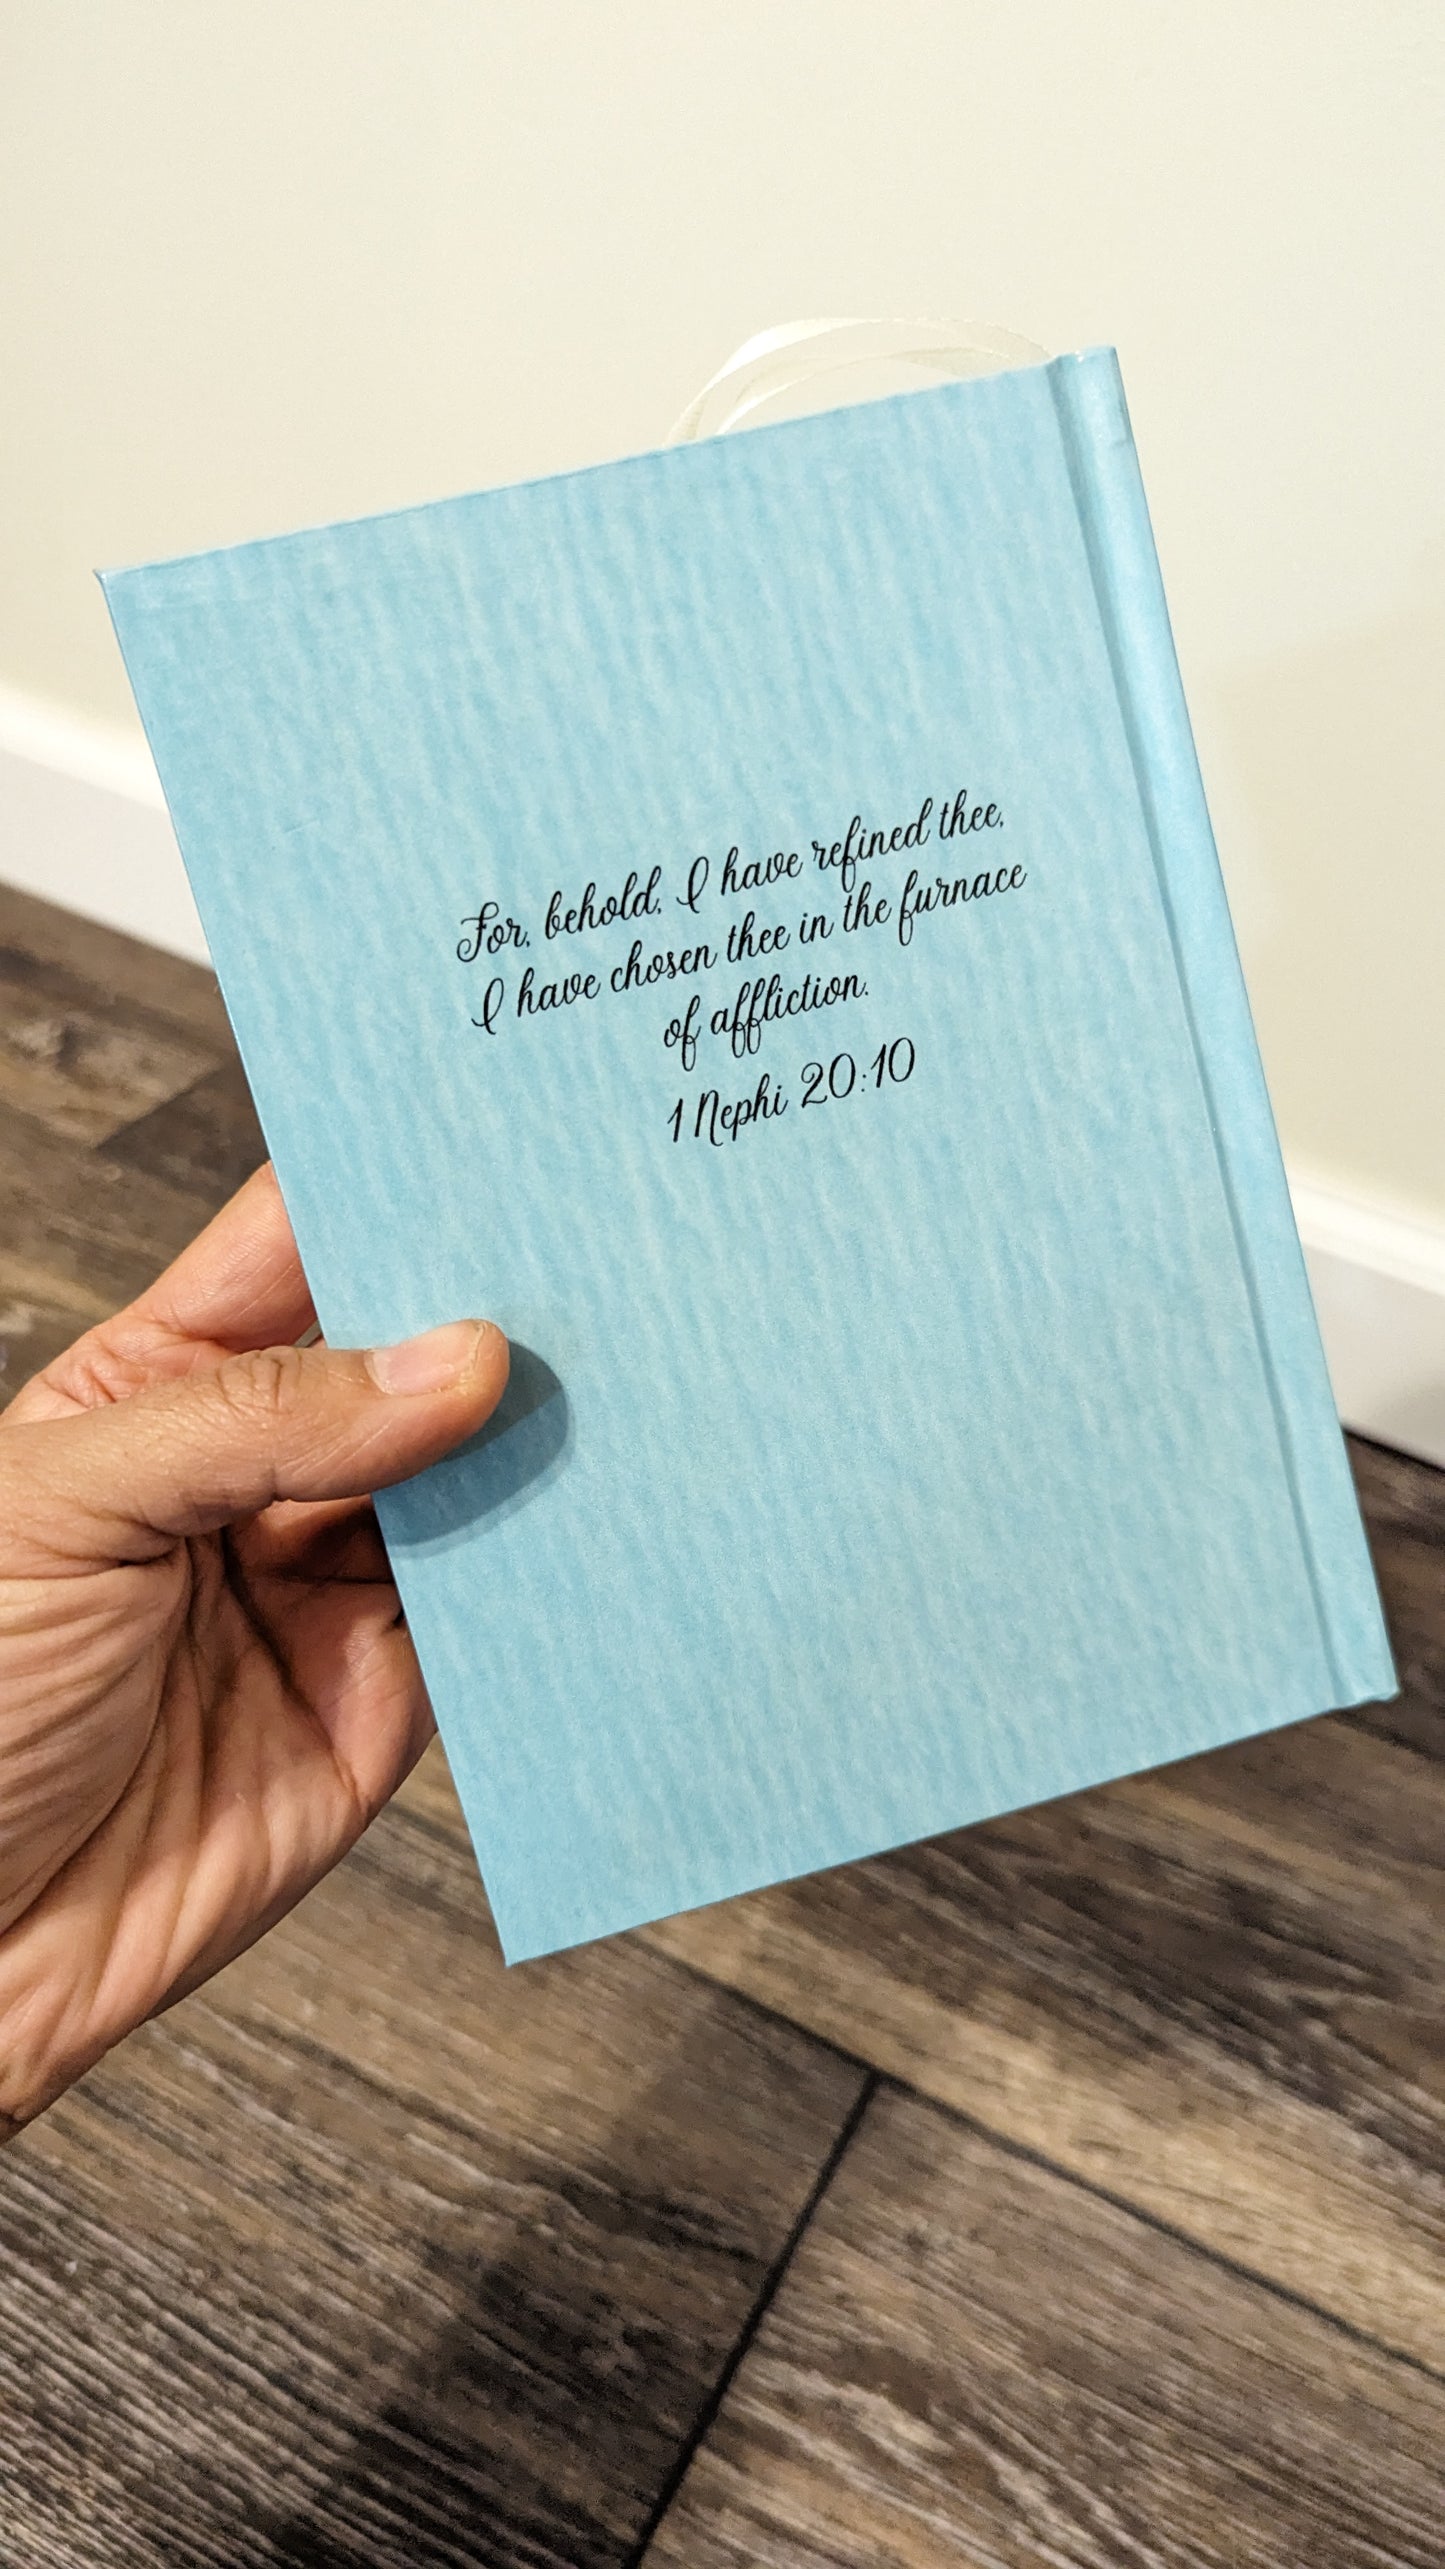 For, behold, I have refined thee,
I have chosen thee in the furnace
of affliction.
1 Nephi 20:10